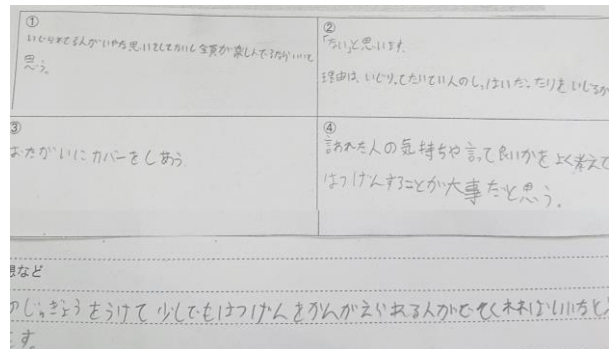 ①
いじられてる人がいやな思いをしてないし全員が楽しんでるならいいと
思う。
②
「ない」と思います。
理由は、いじりってたいてい人のしっぱいだったりをいじるか
③
お たがいにカバーをしあう
④
言われた人の気持ちや言って良いかをよく考えて
はつげんすることが大事だと思う。
想など
のじゅぎょうをうけて少しでもはつげんをかんがえられる人がでてくればいいなと
です。